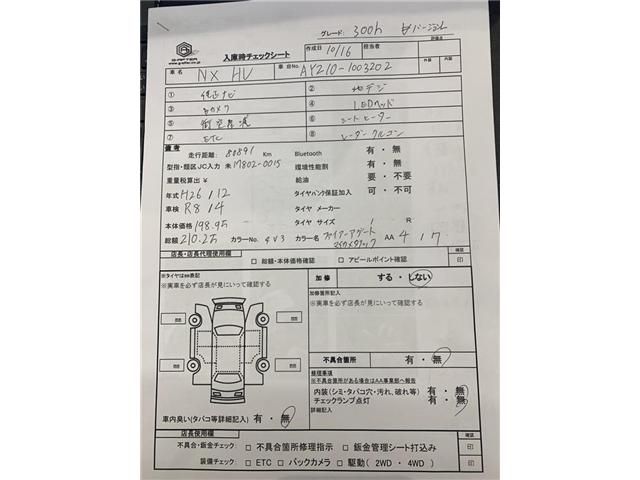 グレード: 300h Aバージョン
G-AFTER
入庫時チェックシート 作成日 10/16 担当者 評価点
車名 NX HV 車台No. AYZ10-1003202 外装 内装
① 純正ナビ ② 地デジ
③ カメラ ④ LEDヘッド
⑤ ⑥ シートヒーター
⑦ ETC ⑧ レーダークルコン
備考
走行距離: 80891 Km Bluetooth 有・無
型指・類区JC入力 未 17802-0015 環境性能割 有・無
重量税算出 ¥ 給油 要・不要
年式 H26/12 タイヤパンク保証加入 可・不可
車検 R8/4 タイヤ メーカー
本体価格 198.9万 タイヤ サイズ / R
総額 210.2万 カラーNo. 4V3 カラー名 ファイアーアゲートマイカメタリック AA 4 1 7
店長・店長代理使用欄 確認
□ 総額・本体価格確認 □ アピールポイント確認 印
※タイヤはmm表記
※実車を必ず店長が見にいって確認する
mm mm
mm mm
車内臭い(タバコ等詳細記入) 有・無
加修 する・しない
加修箇所記入
※実車を必ず店長が見にいって確認する
不具合箇所 有・無
修理事項
※不具合箇所がある場合はAA事業部へ報告
内装(シミ・タバコ穴・汚れ、破れ等) 有・無
チェックランプ点灯 有・無
詳細記入
店長使用欄 確認
不具合・鈑金チェック: □ 不具合箇所修理指示 □ 鈑金管理シート打込み 印
装備チェック: □ ETC □ バックカメラ □ 駆動 (2WD・4WD) 印